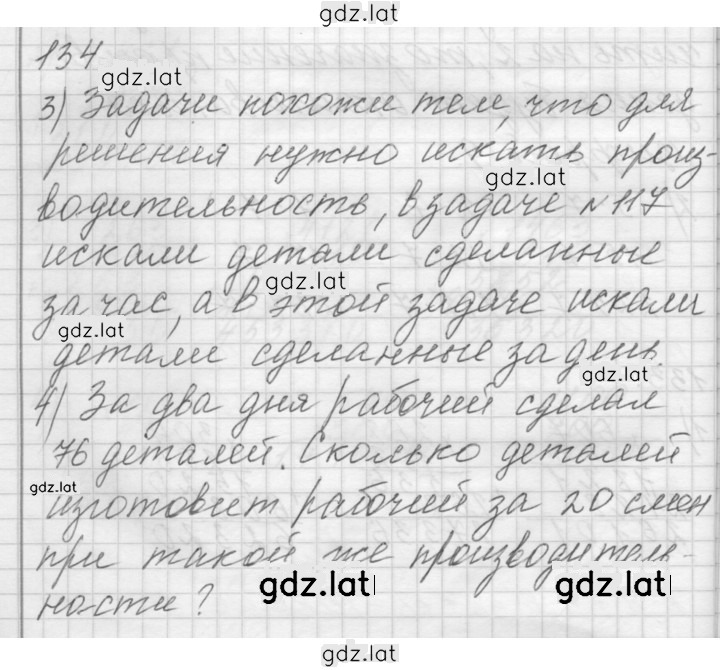 gdz.lat
134
gdz.lat
3) Задачи похожи тем, что для
решения нужно искать произ-
gdz.lat
водительность, в задаче №117
искали детали сделанные
gdz.lat
за час, а в этой задаче искали
gdz.lat
детали сделанные за день.
gdz.lat
4) За два дня рабочий сделал
76 деталей. Сколько деталей
gdz.lat
изготовит рабочий за 20 смен
при такой же производитель-
gdz.lat gdz.lat
ности?
gdz.lat